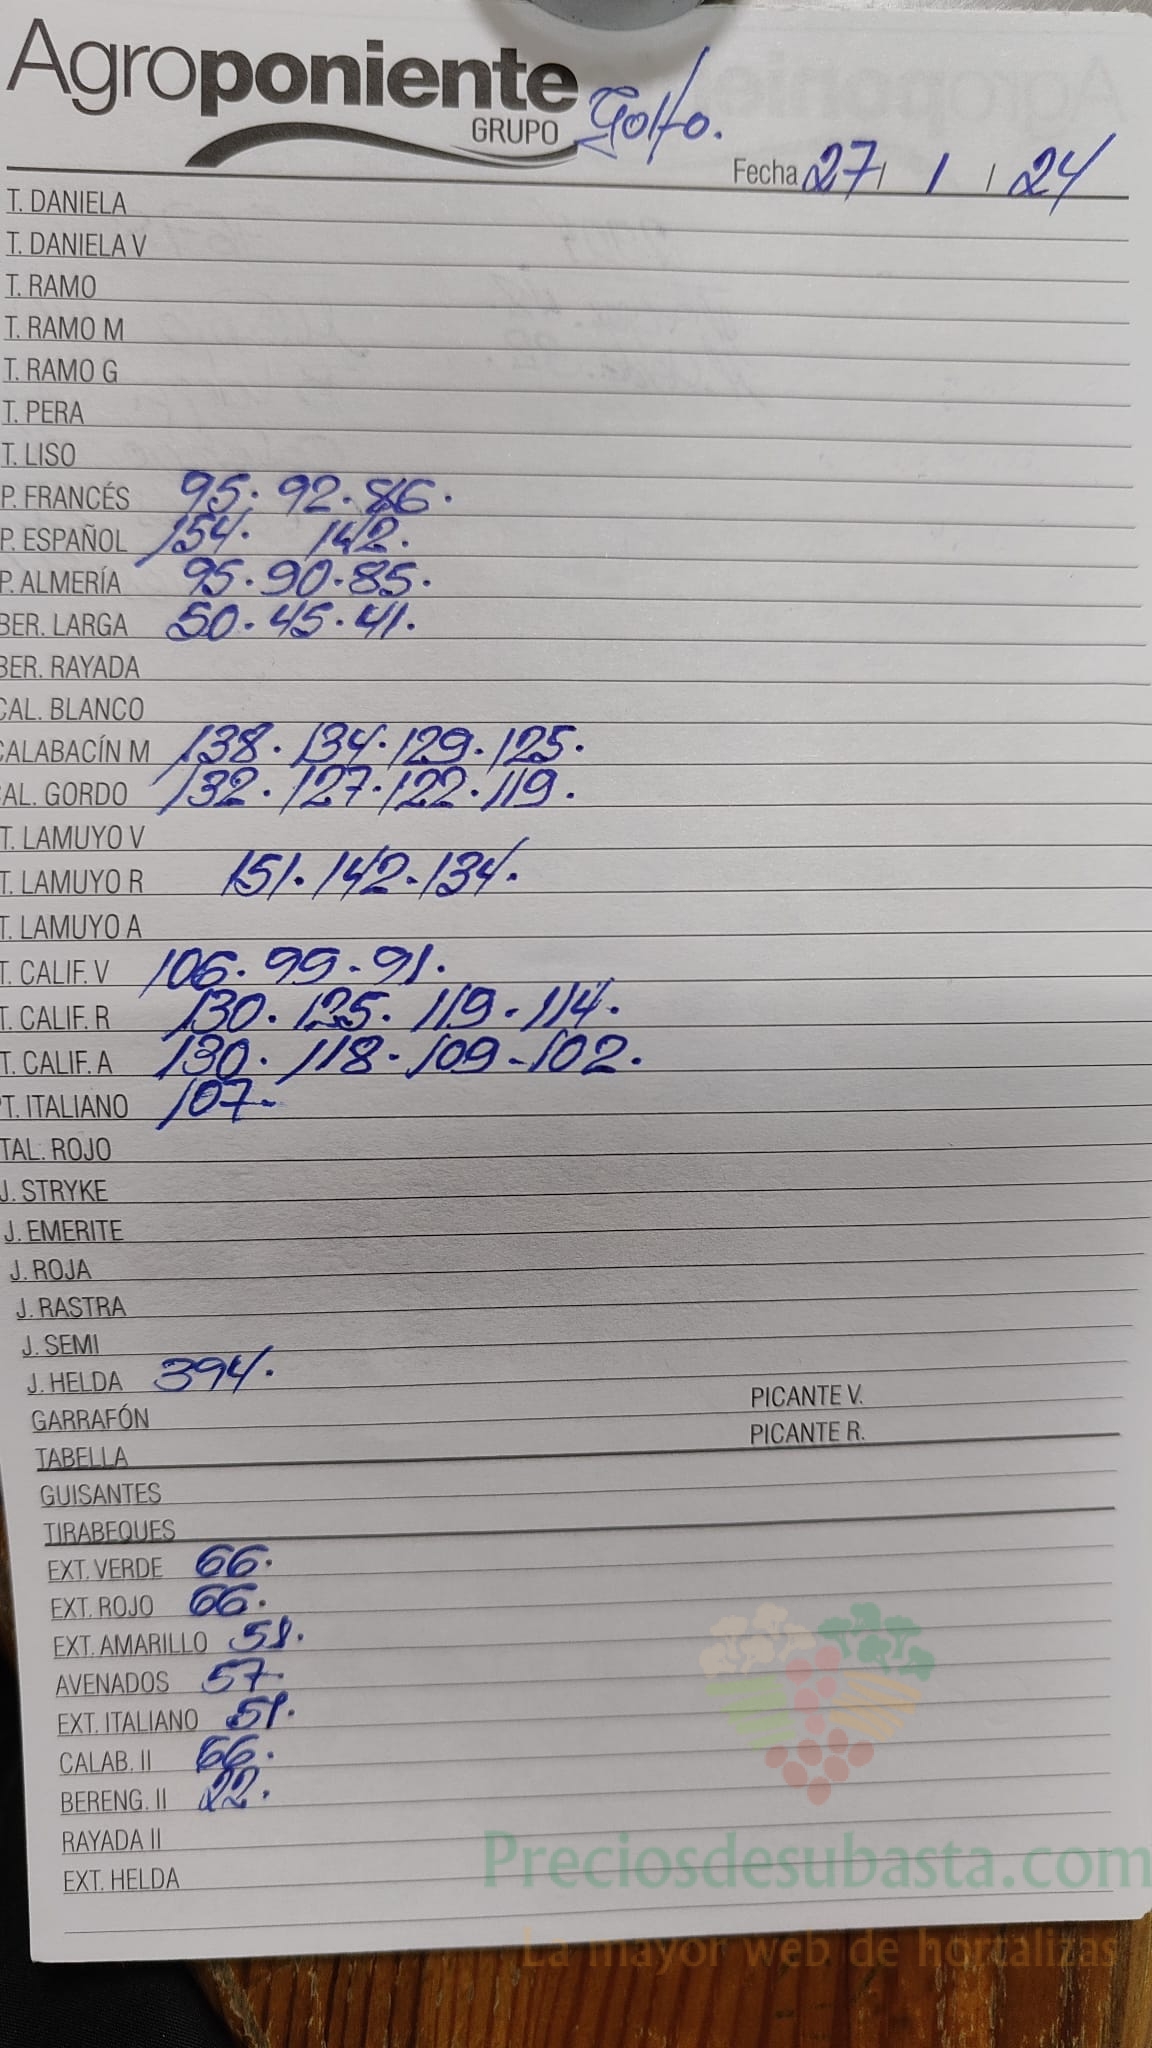 Agroponiente
GRUPO
Golfo.
Fecha 27 / 1 / 24
T. DANIELA
T. DANIELA V
T. RAMO
T. RAMO M
T. RAMO G
T. PERA
T. LISO
P. FRANCÉS 95. 92. 86.
P. ESPAÑOL 154. 142.
P. ALMERÍA 95. 90. 85.
BER. LARGA 50. 45. 41.
BER. RAYADA
CAL. BLANCO
CALABACÍN M 138. 134. 129. 125.
CAL. GORDO 132. 127. 122. 119.
T. LAMUYO V
T. LAMUYO R 151. 142. 134.
T. LAMUYO A
T. CALIF. V 106. 99. 91.
T. CALIF. R 130. 125. 119. 114.
T. CALIF. A 130. 118. 109. 102.
PT. ITALIANO 107.
TAL. ROJO
J. STRYKE
J. EMERITE
J. ROJA
J. RASTRA
J. SEMI
J. HELDA 394.
GARRAFÓN PICANTE V.
TABELLA PICANTE R.
GUISANTES
TIRABEQUES
EXT. VERDE 66.
EXT. ROJO 66.
EXT. AMARILLO 51.
AVENADOS 57.
EXT. ITALIANO 51.
CALAB. II 66.
BERENG. II 22.
RAYADA II
EXT. HELDA
Preciosdesubasta.com
La mayor web de hortalizas